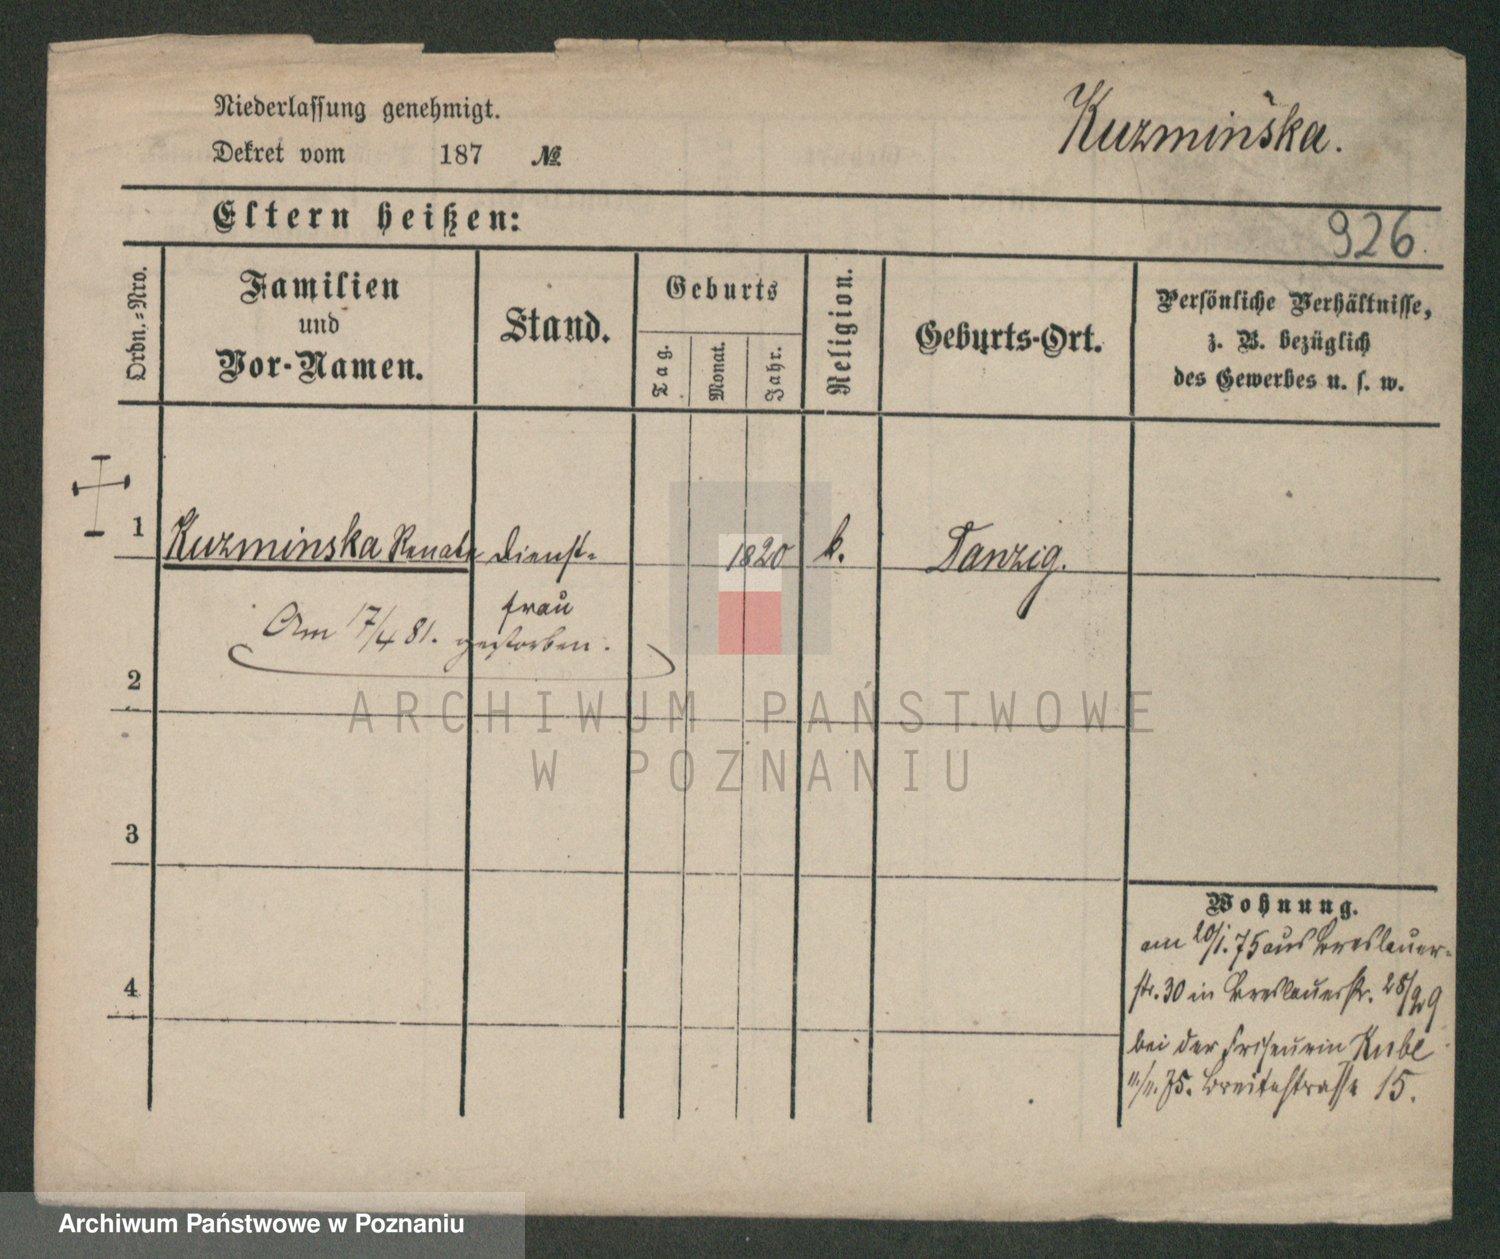 Niederlassung genehmigt.
Kuzmińska.
Dekret vom 187 №
Eltern heißen:
926.
Ordn.-Nro.
Familien
und
Vor-Namen.
Stand.
Geburts
Tag.
Monat.
Jahr.
Religion.
Geburts-Ort.
Persönliche Verhältnisse,
z. B. bezüglich
des Gewerbes u. s. w.
1 Kuzminska Renate Dienst- 1820 k. Danzig.
frau
Am 17/4 81. gestorben.
2
ARCHIWUM PAŃSTWOWE
W POZNANIU
3
4
Wohnung.
am 20/1.75 aus Breslauer-
str. 30 in Breslauerstr. 28/29
bei der Friseurin Kube
11/11.75. Breitestrasse 15.
Archiwum Państwowe w Poznaniu